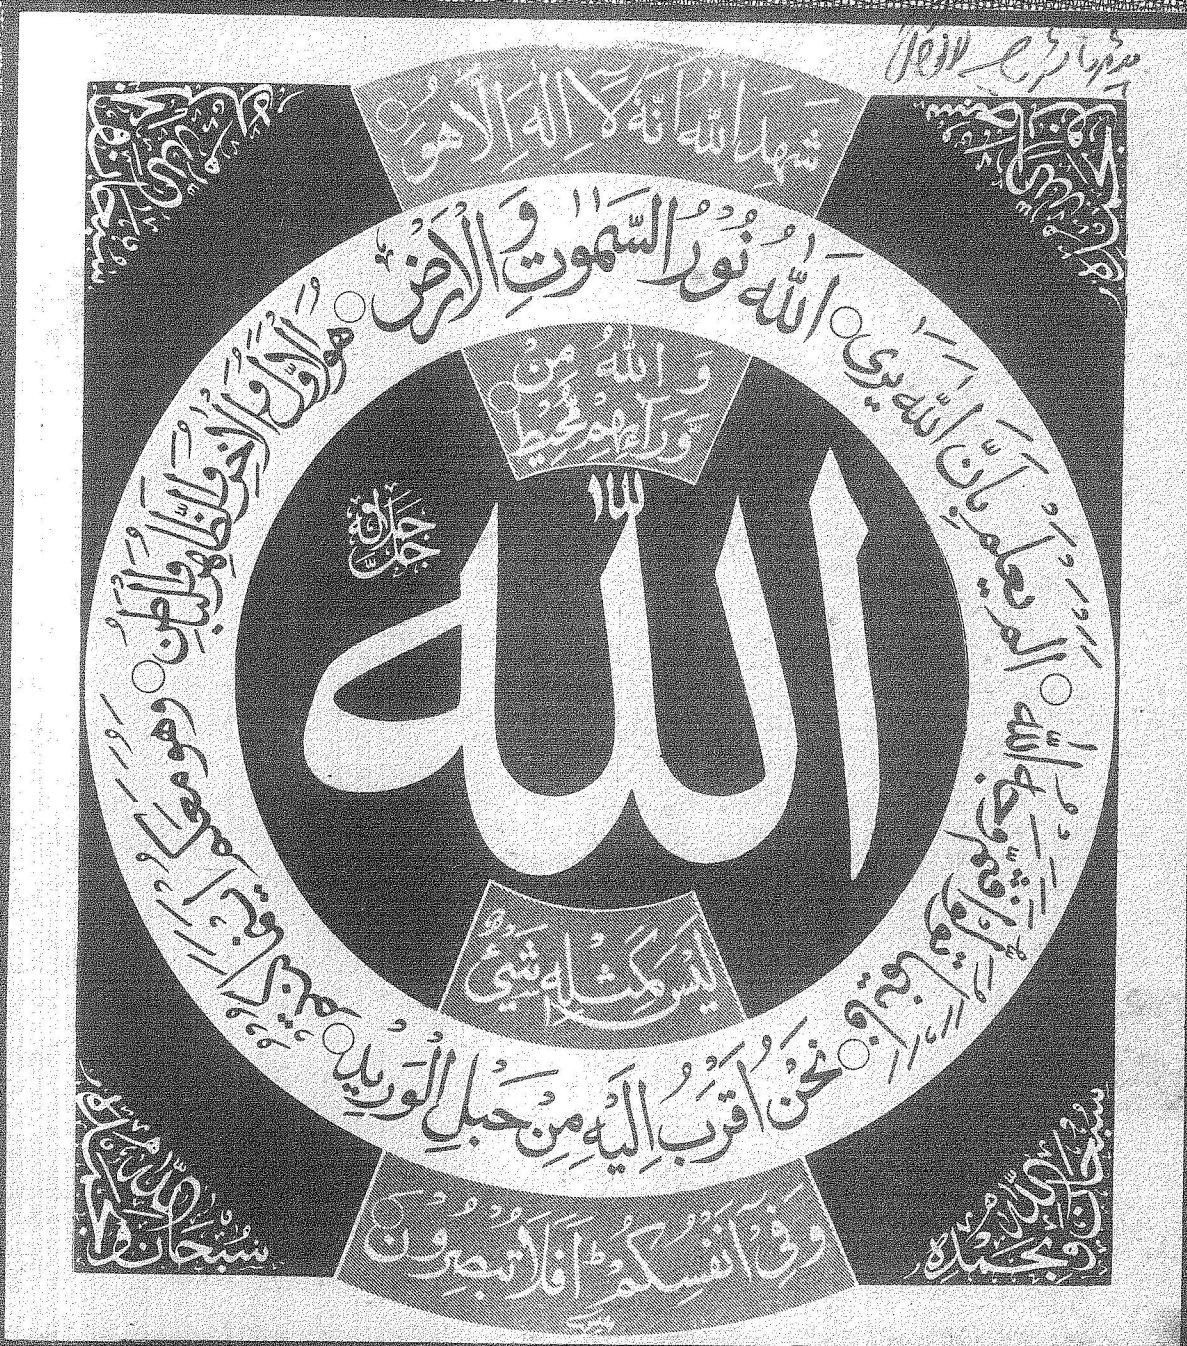 شَهِدَ اللهُ اَنَّهٗ لَآ اِلٰهَ اِلَّا هُوَ
اَللّٰهُ نُوْرُ السَّمٰوٰتِ وَ الْاَرْضِ
هُوَ الْاَوَّلُ وَ الْاٰخِرُ وَ الظَّاهِرُ وَ الْبَاطِنُ
وَهُوَ مَعَكُمْ اَيْنَمَا كُنْتُمْ
نَحْنُ اَقْرَبُ اِلَيْهِ مِنْ حَبْلِ الْوَرِيْدِ
فَاَيْنَمَا تُوَلُّوْا فَثَمَّ وَجْهُ اللّٰهِ
اَلَمْ يَعْلَمْ بِاَنَّ اللّٰهَ يَرٰى
وَ اللهُ مِنْ
وَّرَآءِهِمْ مُّحِيْطٌ
الله
جل جلاله
لَيْسَ كَمِثْلِهٖ شَيْئٌ
وَفِيْ اَنْفُسِكُمْ اَفَلَا تُبْصِرُوْنَ
سبحان الله
وبحمده